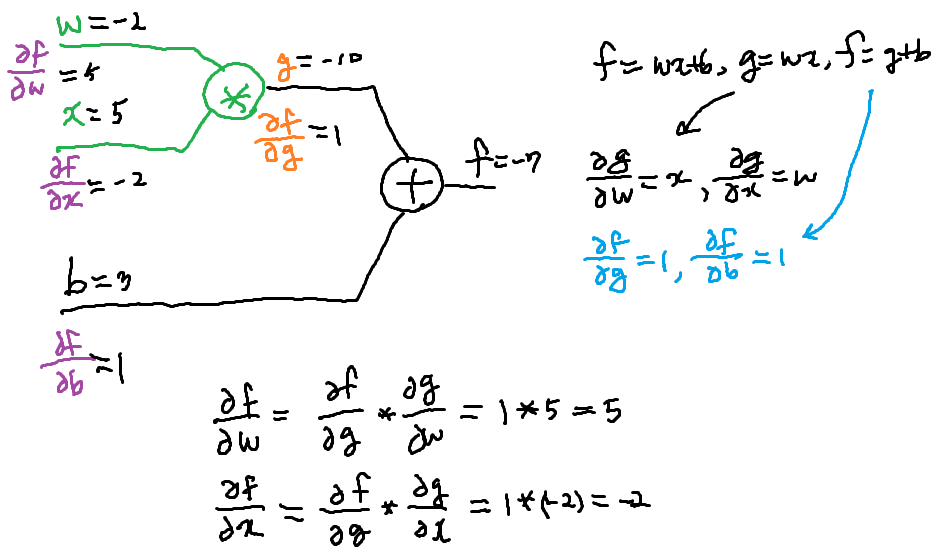 w=-2
∂f/∂w = 5
x=5
∂f/∂x = -2
*
g=-10
∂f/∂g = 1
+
f=-7
b=3
∂f/∂b = 1
f=wx+b, g=wx, f=g+b
∂g/∂w = x, ∂g/∂x = w
∂f/∂g = 1, ∂f/∂b = 1
∂f/∂w = ∂f/∂g * ∂g/∂w = 1 * 5 = 5
∂f/∂x = ∂f/∂g * ∂g/∂x = 1 * (-2) = -2